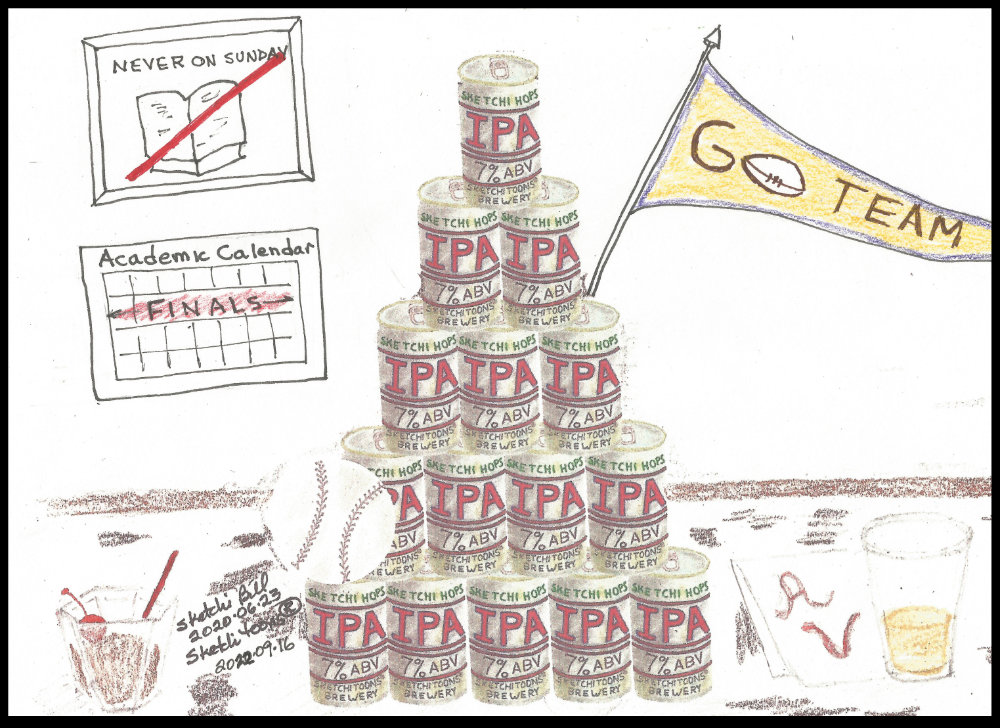 NEVER ON SUNDAY
Academic Calendar
FINALS
GO TEAM
SKETCHI HOPS
IPA
7% ABV
SKETCHITOONS
BREWERY
SKETCHI HOPS
IPA
7% ABV
SKETCHITOONS
BREWERY
SKETCHI HOPS
IPA
7% ABV
SKETCHITOONS
BREWERY
SKETCHI HOPS
IPA
7% ABV
SKETCHITOONS
BREWERY
SKETCHI HOPS
IPA
7% ABV
SKETCHITOONS
BREWERY
SKETCHI HOPS
IPA
7% ABV
SKETCHITOONS
BREWERY
TCHI HOPS
PA
ABV
TOONS
EWERY
SKETCHI HOPS
IPA
7% ABV
SKETCHITOONS
BREWERY
SKETCHI HOPS
IPA
7% ABV
SKETCHITOONS
BREWERY
SKETCHI HOPS
IPA
7% ABV
SKETCHITOONS
BREWERY
SKETCHI HOPS
IPA
7% ABV
SKETCHITOONS
BREWERY
SKETCHI HOPS
IPA
7% ABV
SKETCHITOONS
BREWERY
SKETCHI HOPS
IPA
7% ABV
SKETCHITOONS
BREWERY
SKETCHI HOPS
IPA
7% ABV
SKETCHITOONS
BREWERY
SKETCHI HOPS
IPA
7% ABV
SKETCHITOONS
BREWERY
Sketchi Bill
2020.06.23
Sketchi Toons ®
2022.09.16